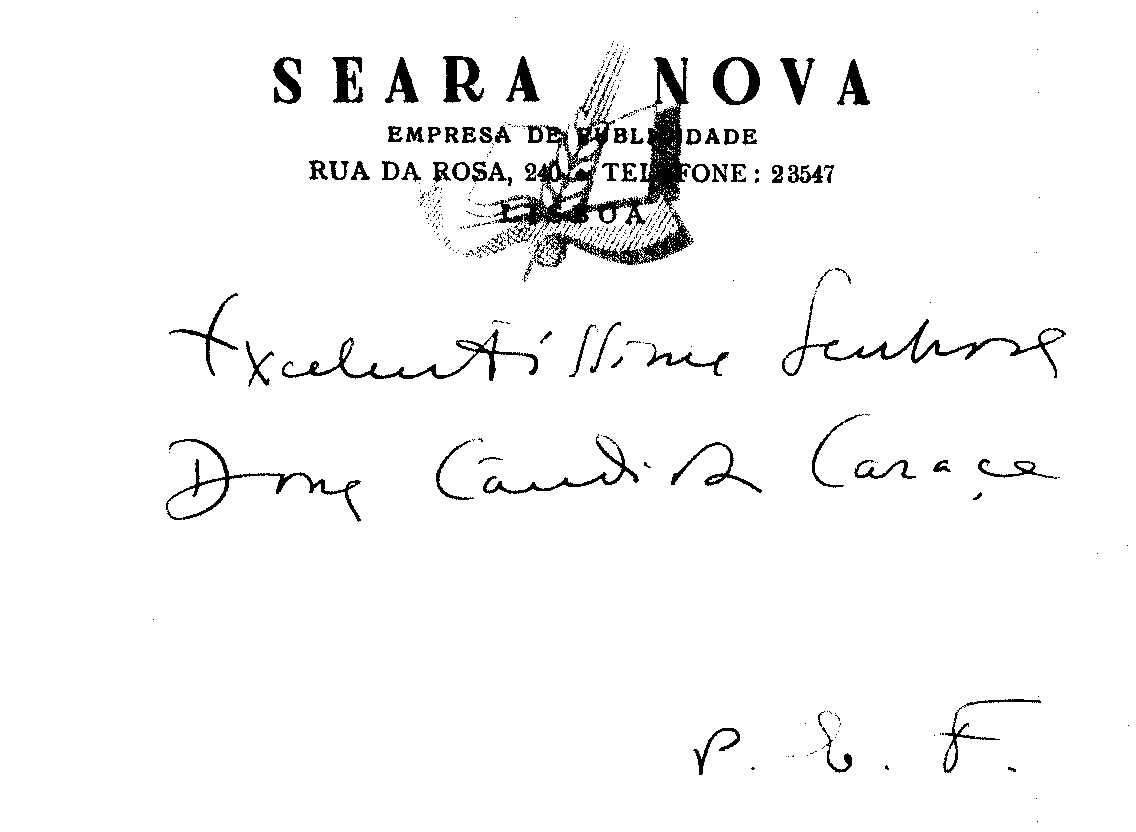 SEARA NOVA
EMPRESA DE PUBLICIDADE
RUA DA ROSA, 240 • TELEFONE: 23547
LISBOA
Excelentíssima Senhora
Dona Cândida Caraça
P. E. F.